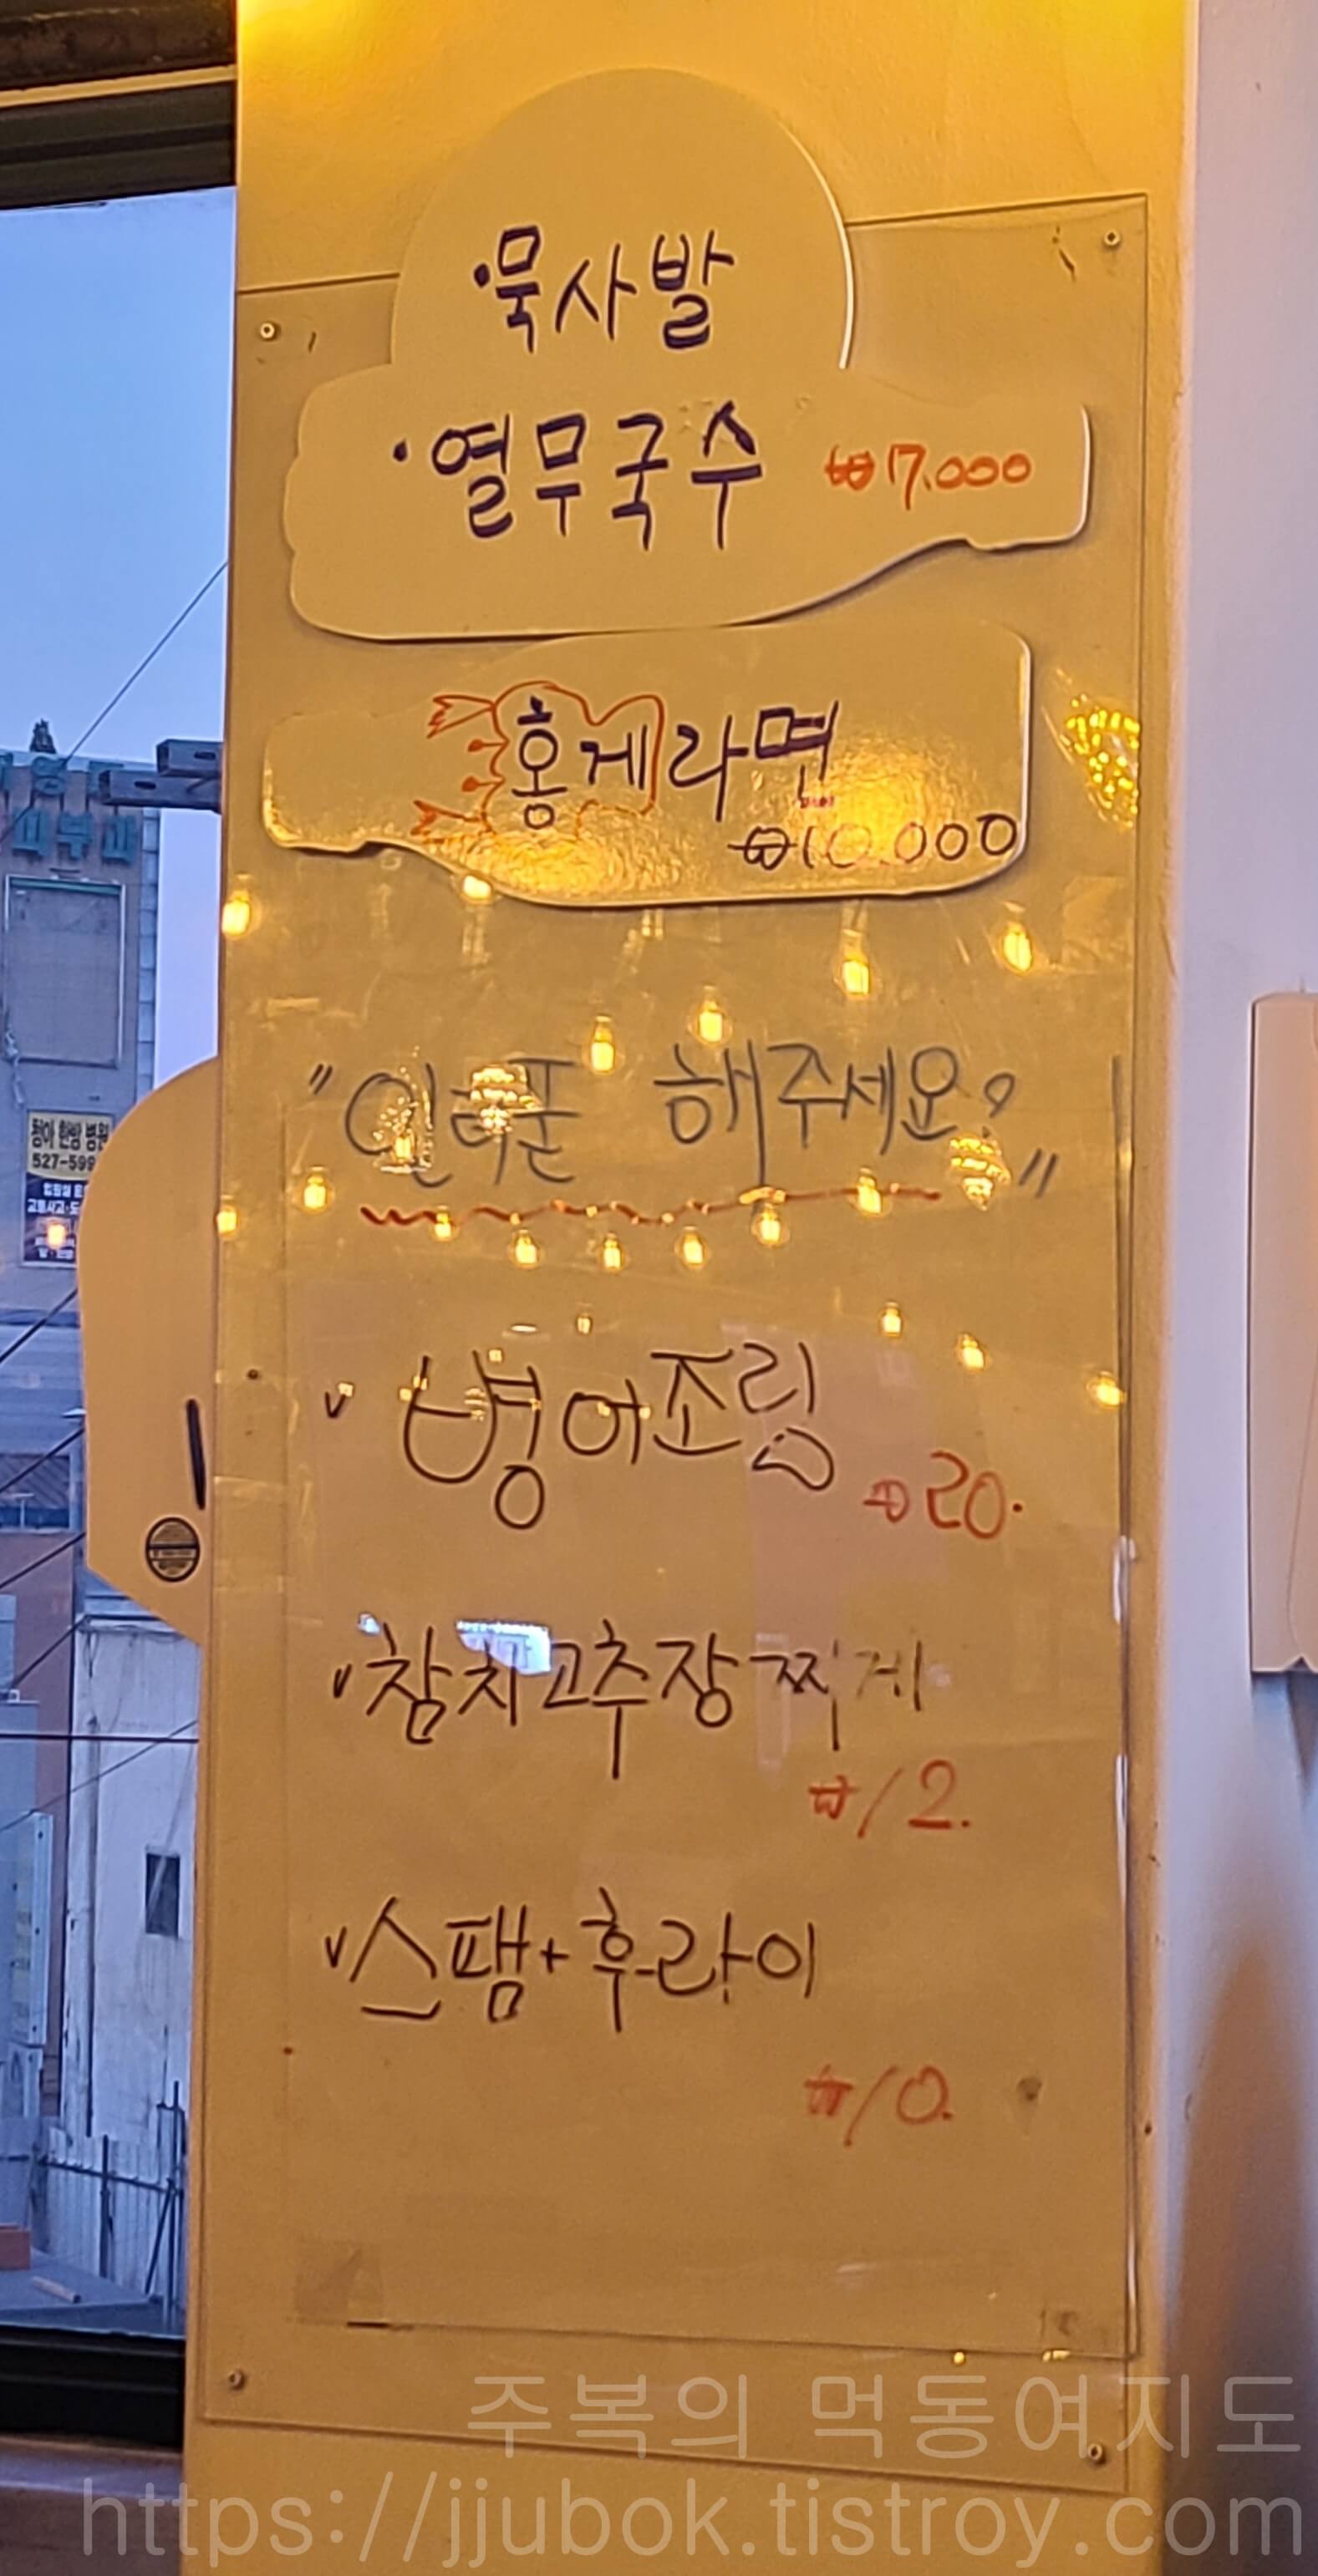 ·묵사발
·열무국수 ₩7.000
홍게라면
₩10.000
"인터폰 해주세요?"
v 병어조림
₩20.
v 참치고추장찌게
₩12.
v 스팸+후라이
₩10.
피부과
청아 한방 병원
527-599
주복의 먹동여지도
https://jjubok.tistroy.com